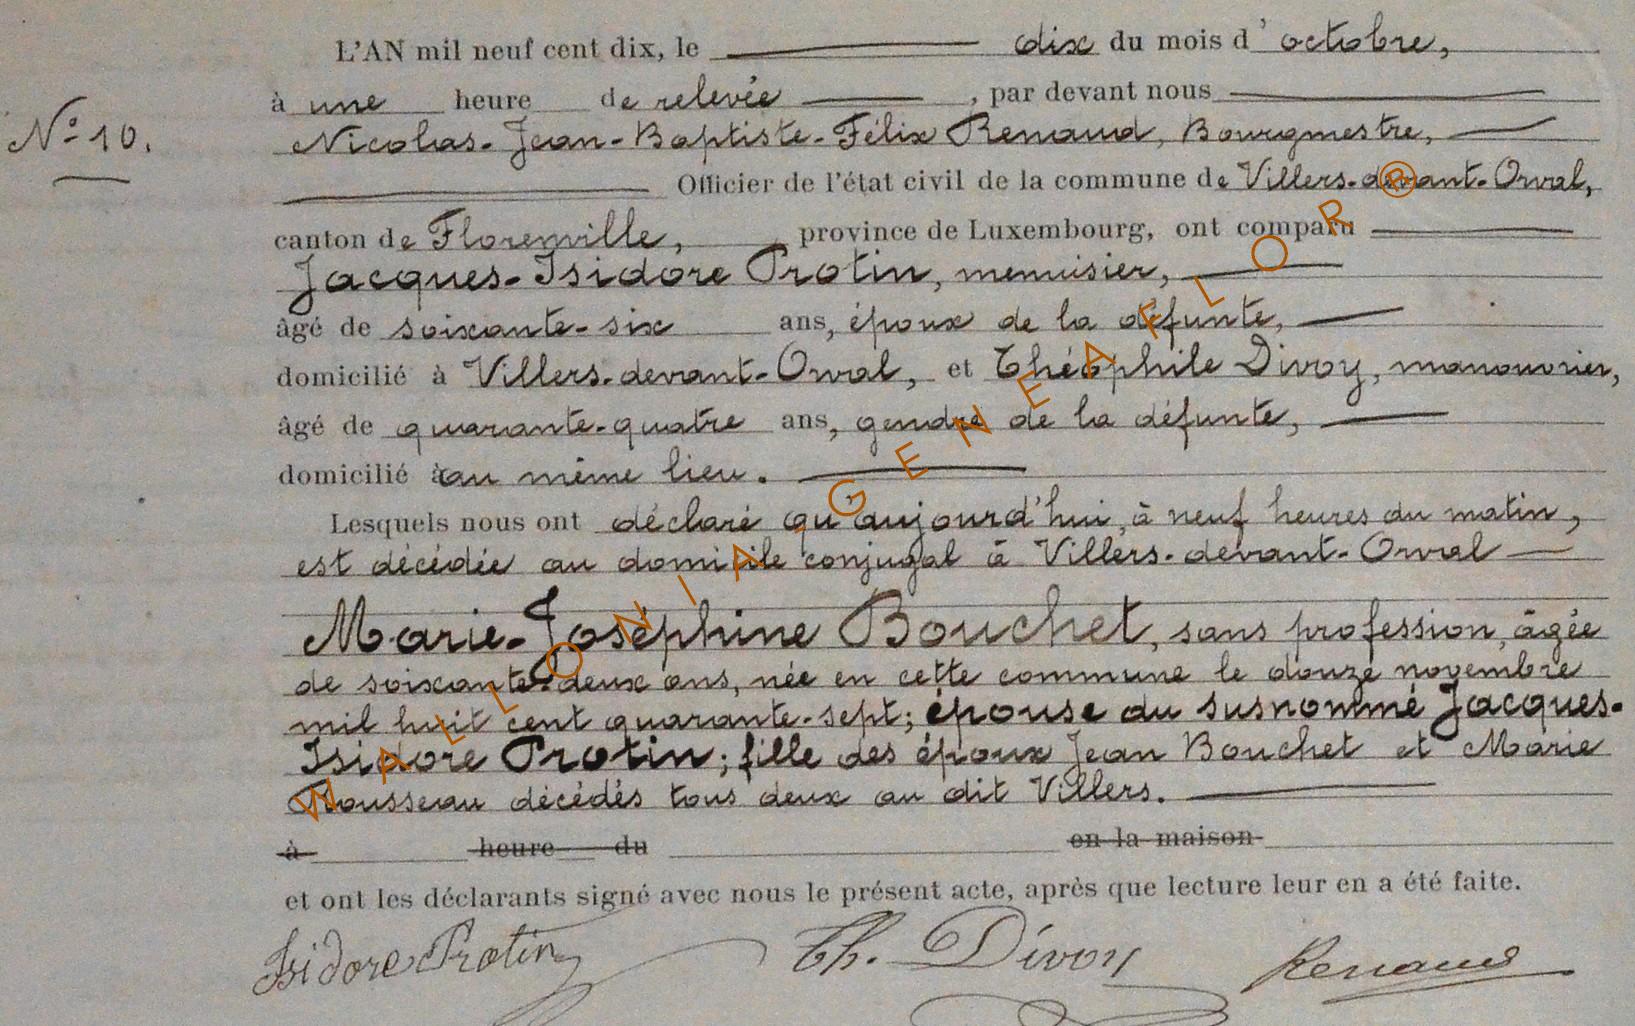 L'AN mil neuf cent dix, le dix du mois d'octobre,
à une heure de relevée, par devant nous
N° 10.
Nicolas-Jean-Baptiste-Félix Renaud, Bourgmestre,
Officier de l'état civil de la commune de Villers-devant-Orval,
canton de Florenville, province de Luxembourg, ont comparu
Jacques-Isidore Protin, menuisier,
âgé de soixante-six ans, époux de la défunte,
domicilié à Villers-devant-Orval, et Théophile Divoy, manouvrier,
âgé de quarante-quatre ans, gendre de la défunte,
domicilié à au même lieu.
Lesquels nous ont déclaré qu'aujourd'hui, à neuf heures du matin,
est décédée au domicile conjugal à Villers-devant-Orval
Marie-Joséphine Bouchet, sans profession, âgée
de soixante-deux ans, née en cette commune le douze novembre
mil huit cent quarante-sept; épouse du susnommé Jacques-
Isidore Protin; fille des époux Jean Bouchet et Marie
Rousseau décédés tous deux au dit Villers.
à heure du en la maison
et ont les déclarants signé avec nous le présent acte, après que lecture leur en a été faite.
Isidore Protin Th. Divoy Renaud
WALLONIA GENEAFLOR ®